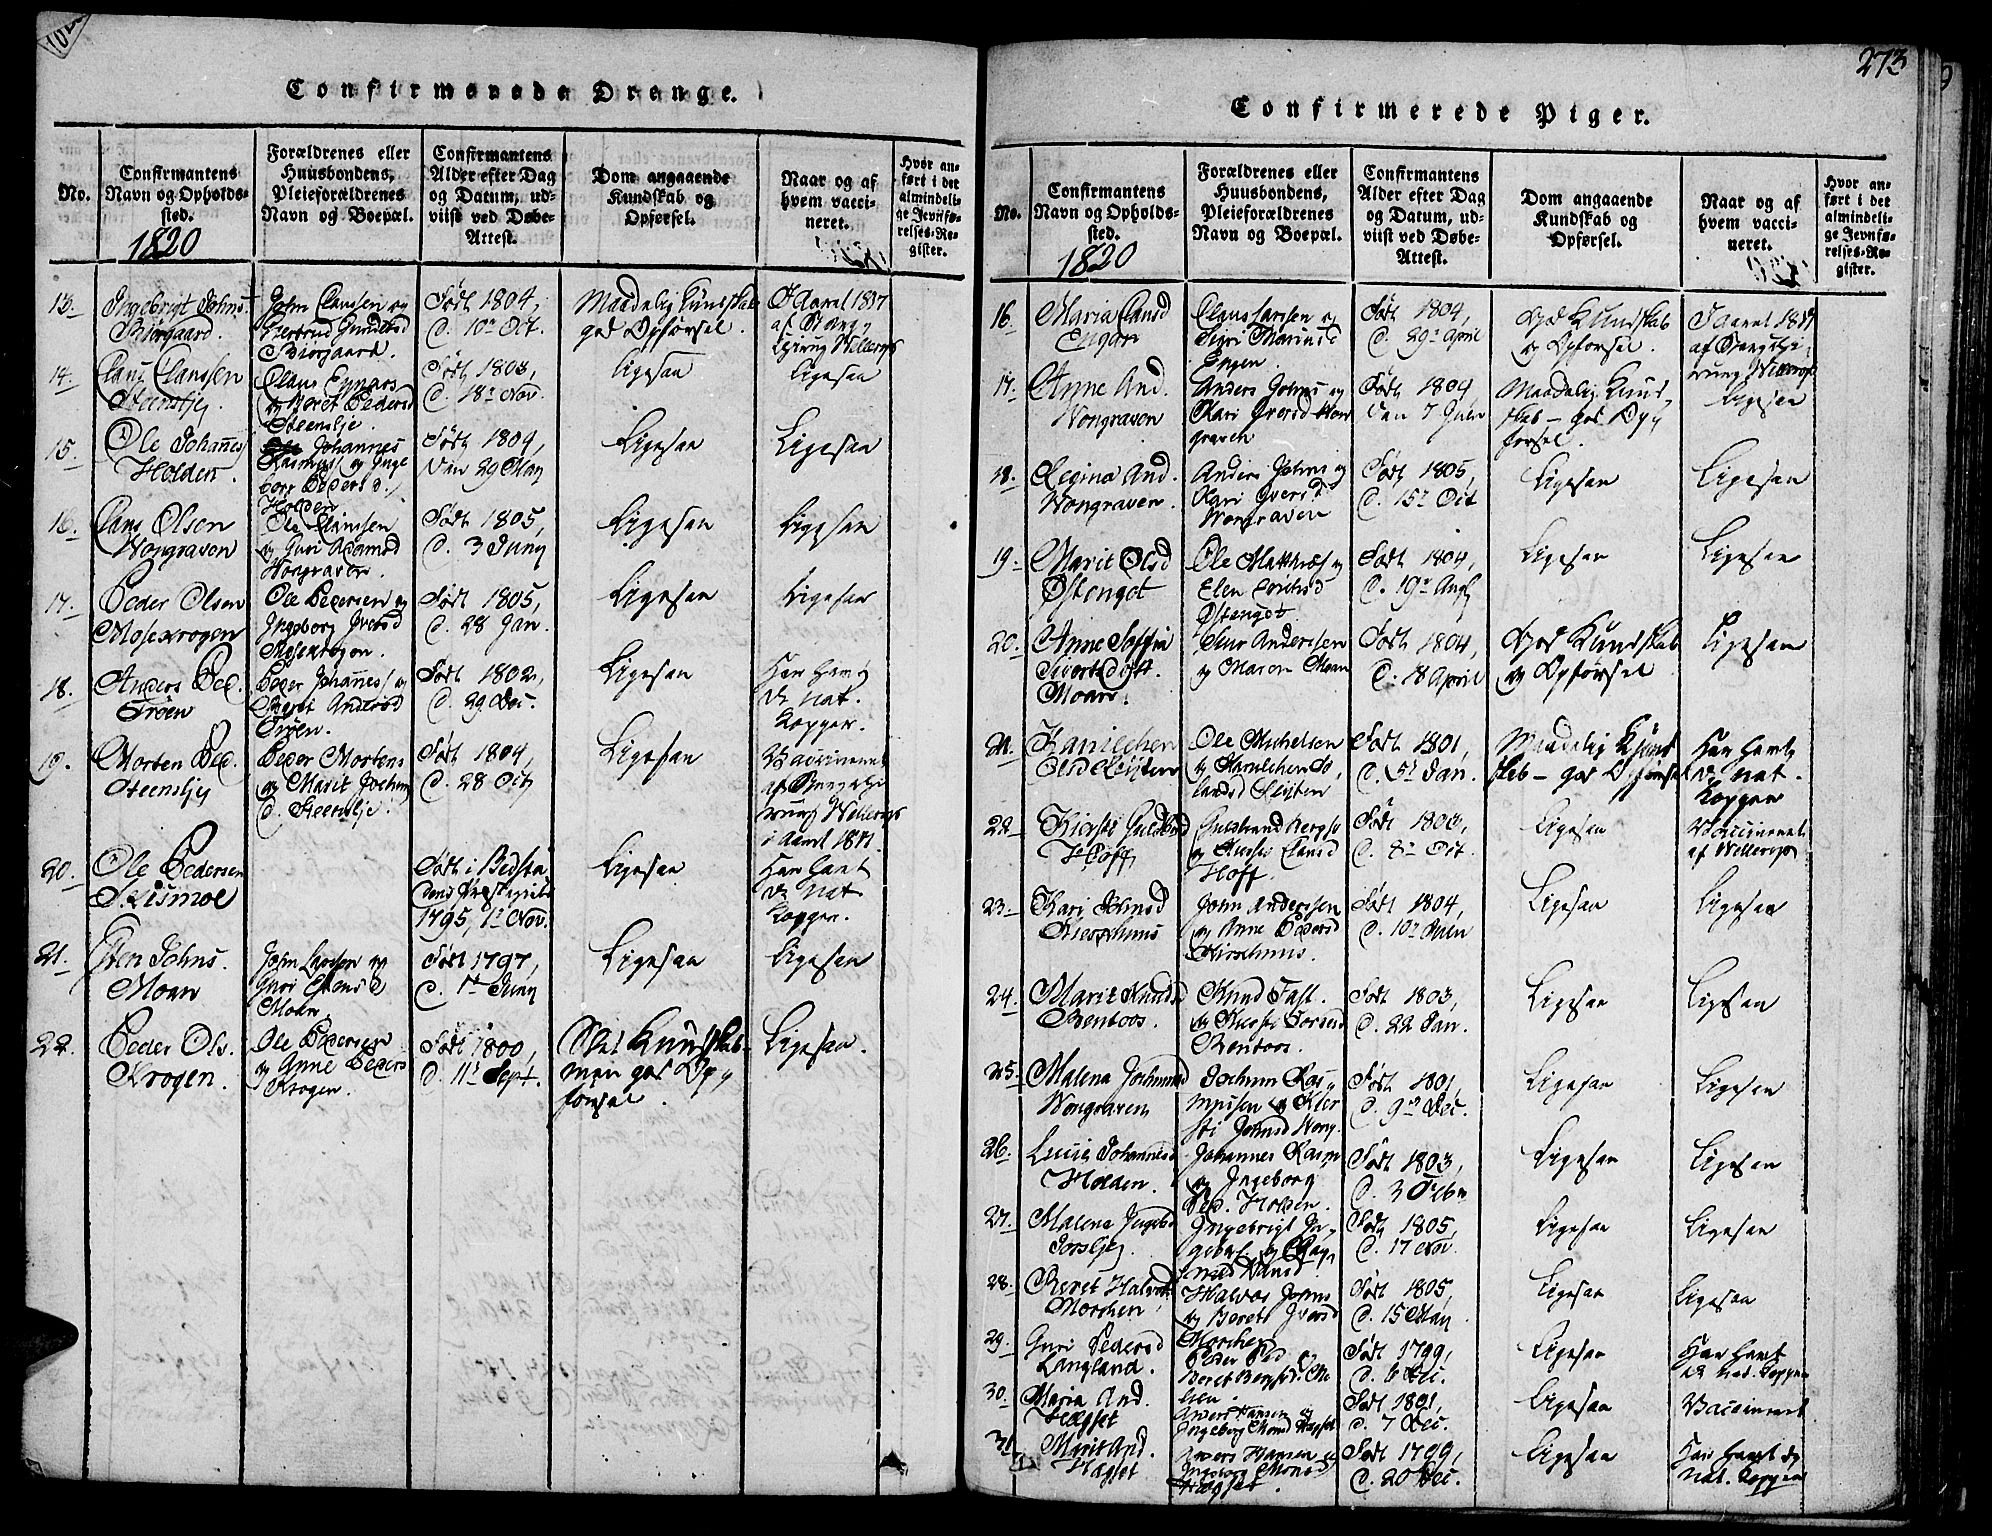 102
Confirmerede Drenge.
No.
Confirmantens
Navn og Opholds-
sted.
1820
Forældrenes eller
Huusbondens,
Pleieforældrenes
Navn og Boepæl.
Confirmantens
Alder efter Dag
og Datum, ud-
viist ved Døbe-
Attest.
Dom angaaende
Kundskab og
Opførsel.
Naar og af
hvem vacci-
neret.
Hvor an-
ført i det
almindeli-
ge Jevnfø-
relses-Re-
gister.
13.
Ingebrigt Johns.
Biørgaard.
John Clausen og
Giertrud
Biørgaard.
Født 1804,
d. 10de Oct.
Maadelig Kundskab
god Opførsel.
I Aaret 1817
af
14.
Claus Clausen
Steenslje
Claus
og Beret Pedersd
Steenslje.
Født 1803,
d. 18de Nov.
Ligesaa
Ligesaa
15.
Ole Johannes
Holden.
Johannes
Rasmus. og Inge
borg Pedersd.
Holden
Født 1804,
den 29 May
Ligesaa
Ligesaa
16.
Claus Olsen
Wongraven
Ole Clausen
og Guri
Wongraven.
Født 1805,
d. 3 Juny
Ligesaa
Ligesaa
17.
Peder Olsen
Mosekrogen
Ole Pedersen og
Ingeborg Iversd
Mosekrogen.
Født 1805,
d. 28 Jan.
Ligesaa
Ligesaa
18.
Anders Ped.
Trøen
Peder Johannes. og
Beret Andersd
Trøen.
Født 1802,
d. 29 Dec.
Ligesaa
Har havt
d. nat.
Kopper.
19.
Morten Ped.
Steenslje
Peder Mortens
og Marit Jochum
d. Steenslje.
Født 1804
d. 28 Oct
Ligesaa
Vaccineret
af
i Aaret
20.
Ole Pedersen
Skismoe
Født i
dens Præstegield
1795, 1ste Nov.
Ligesaa
Har havt
d. nat
Kopper.
21.
Esten Johns.
Moan
John Larsen og
Guri Estensd
Moan.
Født 1797,
d. 1ste Juny
Ligesaa
Ligesaa
22.
Peder Ols.
Krogen.
Ole Pedersen
og Anne Peders
Krogen.
Født 1800,
d. 11te Sept.
Slet Kundskab-
men god Op-
førsel.
Ligesaa.
273
Confirmerede Piger.
No.
Confirmantens
Navn og Opholds-
sted.
1820
Forældrenes eller
Huusbondens,
Pleieforældrenes
Navn og Boepæl.
Confirmantens
Alder efter Dag
og Datum, ud-
viist ved Døbe-
Attest.
Dom angaaende
Kundskab og
Opførsel.
Naar og af
hvem vacci-
neret.
Hvor an-
ført i det
almindeli-
ge Jevnfø-
relses-Re-
gister.
16.
Maria Clausd
Engan
Claus Larsen og
Sigri
Engen
Født 1804,
d. 29de April
God Kundskab
og Opførsel.
I Aaret 1817
af
17.
Anne And.
Wongraven
Anders Johns og
Kari Iversd Won
graven
Født 1804
den 7 Julii
Maadelig Kund-
skab - god Op-
førsel.
Ligesaa
18.
Regina And.
Wongraven.
Anders Johns og
Kari Iversd
Wongraven
Født 1805,
d. 15de Oct
Ligesaa
Ligesaa
19.
Marit Olsd
Østengot
Ole Mathias. og
Elen
Østengot
Født 1804,
d. 19de Aug.
Ligesaa
Ligesaa
20.
Anne Soffia
Sivertsd
Moan.
Siur Andersen
og Maren Moan
Født 1804,
d. 18 April
God Kundskab
og Opførsel
Ligesaa
21.
Olsd Slupen
Ole Michelsen
og
Født 1801,
d. 5te Jan.
Maadelig Kund
skab - god Opførsel
Har havt
d. nat.
Kopper
22.
Kiersti
Hoff
og Kiersti Clausd
Hoff.
Født 1803,
d. 8de Oct.
Ligesaa
Vaccineret
af
23.
Kari Johnsd
John Andersen
og Anne Pedersd
Født 1804,
d. 10de
Ligesaa
Ligesaa
24.
Marit Knudsd
Bentoos.
Knud
og Kiersti
Bentoos.
Født 1803,
d. 22 Jan.
Ligesaa
Ligesaa
25.
Malena Jochumsd
Wongraven
Jochum Ras-
mussen og Kier
sti Johnsd Wong.
Født 1801,
d. 9de Dec.
Ligesaa
Ligesaa
26.
Lucia Johannesd
Holden.
Johannes Rasm
og Ingeborg
Ped. Holden.
Født 1803,
d. 3 Octbr
Ligesaa
Ligesaa
27.
Malena Ingebr
Ingebrigt In-
gebr. og Rag-
nild Hansd.
Født 1805,
d. 17 Nov.
Ligesaa
Ligesaa
28.
Beret Halvor
Morken
Halvor Johns
og Berete Iversd
Morken
Født 1805,
d. 15 May
Ligesaa
Ligesaa
29.
Guri Pedersd
Langland.
Peder Ped. og
Beret
Født 1799,
d. 6 Dec.
Ligesaa
Har havt
d. nat. Kopper
30.
Maria And.
Hægset
Anders Hansen og
Ingeborg Hægset
d. 7 Dec.
Ligesaa
Vaccineret
31.
Marit And.
Hægset
Anders Hansen og
Ingeborg
Hægset.
Født 1799,
d. 20 Dec.
Ligesaa
Har havt d.
nat. Kopper